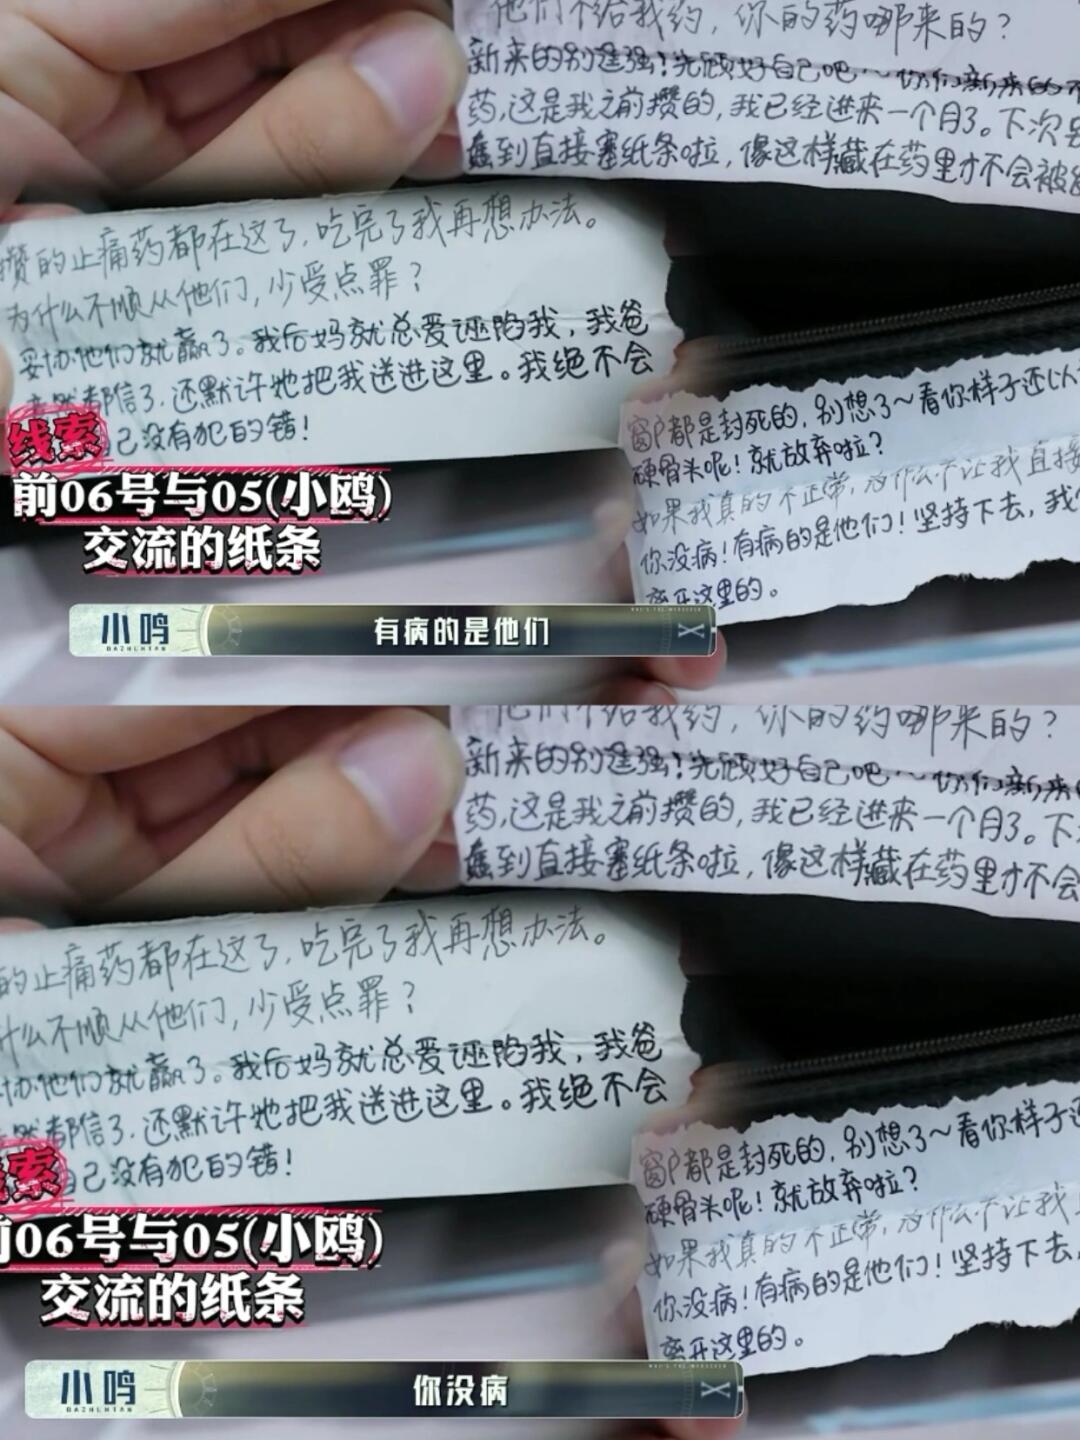 他们不给我药，你的药哪来的？
新来的别逞强！先顾好自己吧～你们新来的不
药，这是我之前攒的，我已经进来一个月了。下次别
蠢到直接塞纸条啦，像这样藏在药里才不会被
攒的止痛药都在这了，吃完了我再想办法。
为什么不顺从他们，少受点罪？
妥协他们就赢了。我后妈就总爱诬陷我，我爸
竟然都信了，还默许她把我送进这里。我绝不会
己没有犯的错！
窗户都是封死的，别想了～看你样子还以
硬骨头呢！就放弃啦？
如果我真的不正常，为什么不让我直接
你没病！有病的是他们！坚持下去，我
离开这里的。
线索
前06号与05(小鸥)
交流的纸条
小鸣
DAZHENTAN
有病的是他们
WHO'S THE MURDERER
他们不给我药，你的药哪来的？
新来的别逞强！先顾好自己吧～你们新来
药，这是我之前攒的，我已经进来一个月了。下
蠢到直接塞纸条啦，像这样藏在药里才不会
的止痛药都在这了，吃完了我再想办法。
什么不顺从他们，少受点罪？
协他们就赢了。我后妈就总爱诬陷我，我爸
然都信了，还默许她把我送进这里。我绝不会
自己没有犯的错！
窗户都是封死的，别想了～看你样子还
硬骨头呢！就放弃啦？
如果我真的不正常，为什么不让我
你没病！有病的是他们！坚持下去，
离开这里的。
索
前06号与05(小鸥)
交流的纸条
小鸣
DAZHENTAN
你没病
WHO'S THE MURDERER